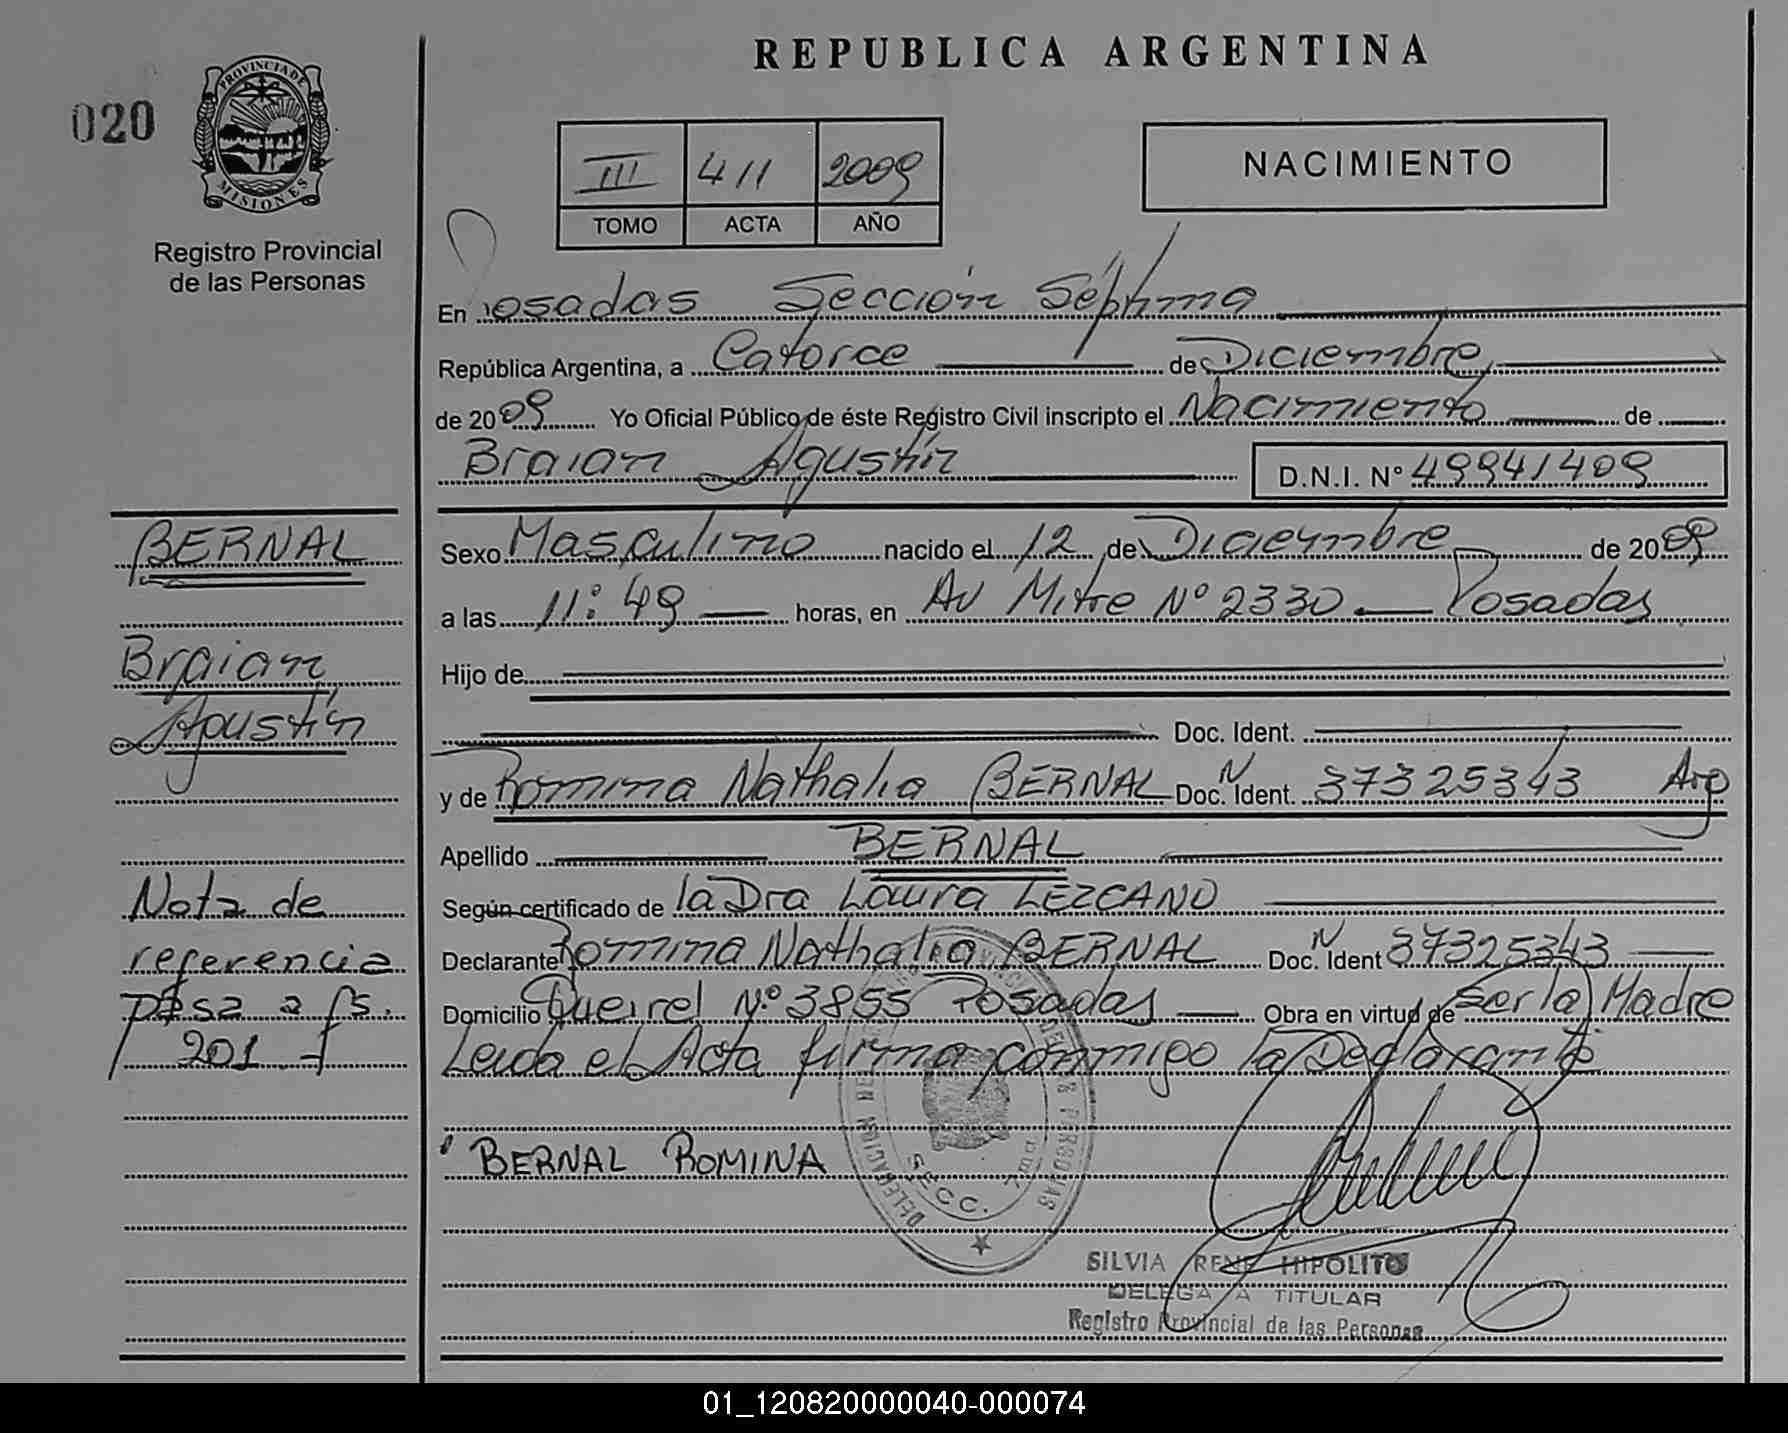 REPUBLICA ARGENTINA
020
PROVINCIA DE
MISIONES
Registro Provincial
de las Personas
III 411 2009
TOMO ACTA AÑO
NACIMIENTO
En Posadas Sección Séptima
República Argentina, a Catorce de Diciembre
de 2009 Yo Oficial Público de éste Registro Civil inscripto el Nacimiento de
Braian Agustín D.N.I. N° 49941409
BERNAL
Braian
Agustín
Nota de
referencia
pasa a fs.
201
Sexo Masculino nacido el 12 de Diciembre de 2009
a las 11:49 horas, en Av Mitre N° 2330 Posadas
Hijo de
Doc. Ident.
y de Romina Nathalia BERNAL Doc. N Ident. 37325343 Arg
Apellido BERNAL
Según certificado de la Dra Laura LEZCANO
Declarante Romina Nathalia BERNAL Doc. N Ident 37325343
Domicilio Queirel N° 3855 Posadas Obra en virtud de Ser la Madre
Leida el Acta firma conmigo la Declarante
BERNAL ROMINA
DELEGACION
DE LAS PERSONAS
SECC. 7
SILVIA RENE HIPOLITO
DELEGADA TITULAR
Registro Provincial de las Personas
01_120820000040-000074